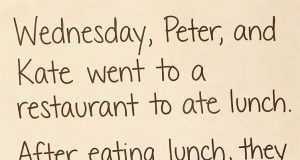 Wednesday, Peter, and
Kate went to a
restaurant to ate lunch.
After eating lunch, they